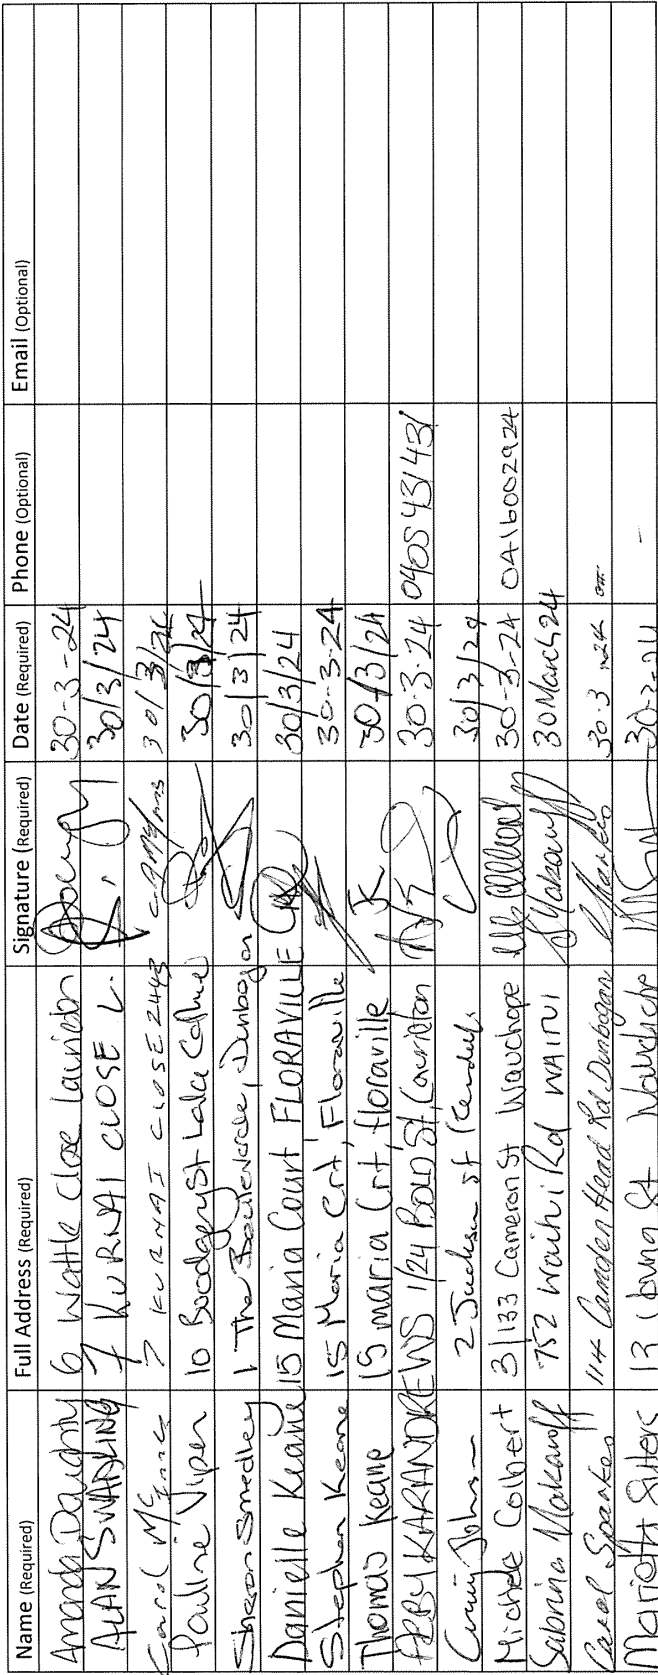 Name (Required) Full Address (Required) Signature (Required) Date (Required) Phone (Optional) Email (Optional)
Amanda 6 Wattle Close Laurieton 30-3-24
ALAN SWADLING 7 KURNAI CLOSE L. 30/3/24
Carol 7 KURNAI CLOSE 2443 30/3/24
Pauline Viper 10 St Lake Cathie 30/3/24
Sharon Smedley 1 The Boulevarde, Dunbogan 30/3/24
Danielle Keane 15 Maria Court FLORAVILLE 30/3/24
Stephen Keane 15 Maria Crt, Floraville 30-3-24
Thomas Keane 15 maria Crt, floraville JK 30/3/24
KARANDREWS 1/24 BOLD St, Laurieton 30-3-24 0405431431
Johnson 2 Jackson st Kendall. 30/3/24
Michele Colbert 3/133 Cameron St Wauchope 30-3-24 0416002924
Sabrina Makaroff 752 Waihi Rd WAITUI 30 March 24
Carol 114 Camden Head Rd Dunbogan 30-3-24
Marietta 13 Young St Wauchope 30-3-24 -